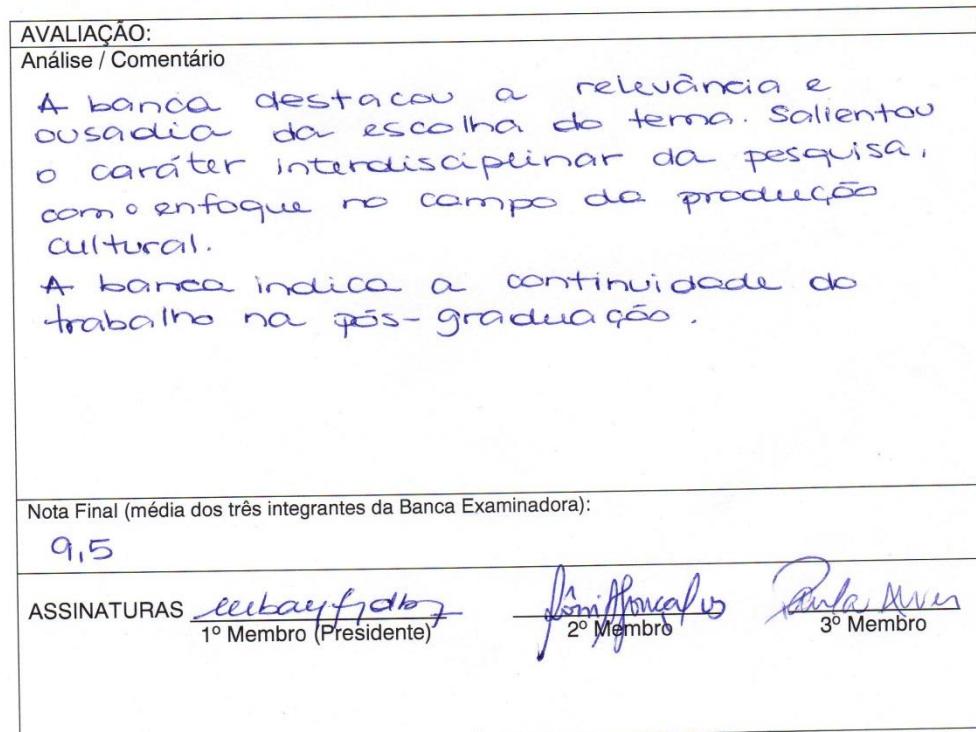 AVALIAÇÃO:
Análise / Comentário
A banca destacou a relevância e
ousadia da escolha do tema. Salientou
o caráter interdisciplinar da pesquisa,
com o enfoque no campo da produção
cultural.
A banca indica a continuidade do
trabalho na pós-graduação.
Nota Final (média dos três integrantes da Banca Examinadora):
9,5
ASSINATURAS
Paula Alves
1º Membro (Presidente) 2º Membro 3º Membro